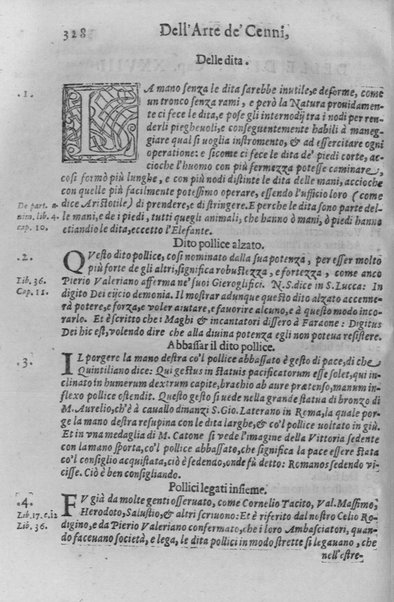 328
Dell'Arte de' Cenni,
Delle dita.
.1.
LA mano senza le dita sarebbe inutile, e deforme, come
un tronco senza rami, e però la Natura prouidamen-
te ci fece le dita, e pose gli internodij tra i nodi per ren-
derli piegheuoli, e conseguentemente habili à maneg-
giare qual si uoglia instromento, & ad essercitare ogni
operatione: e sicome ci fece le dita de' piedi corte, ac-
cioche l'huomo con più fermezza potesse caminare,
così formò più lunghe, e con più nodi distinte le dita delle mani, accioche
con quelle più facilmente potessimo operare, essendo l'ufficio loro (come
De part. a-
dice Aristotile) di prendere, e di stringere. E perche le dita sono parte del-
nim. lib. 4.
le mani, e de i piedi, tutti quegli animali, che hanno ò mani, ò piedi hanno
cap. 10.
etiandio le dita, eccetto l'Elefante.
Dito pollice alzato.
.2.
QVesto dito pollice, così nominato dalla sua potenza, per esser molto
più forte de gli altri, significa robustezza, e fortezza, come anco
Lib. 36.
Pierio Valeriano afferma ne' suoi Gieroglifici. N.S. dice in S. Lucca: In
Cap. 11.
digito Dei eijcio demonia. Il mostrar adunque questo dito alzato accenne-
rà potere, e forza, e voler aiutare, e fauorire alcuno, e à questo modo inco-
rarlo. Et è scritto che i Maghi & incantatori dissero à Faraone: Digitus
Dei hic est, volendo dire che alla diuina potenza egli non poteua resistere.
Abbassar il dito pollice.
.3.
IL porgere la mano destra co'l pollice abbassato è gesto di pace, di che
Quintiliano dice: Qui gestus in statuis pacificatorum esse solet, qui in-
clinato in humerum dextrum capite, brachio ab aure prætenso, manum in-
flexo pollice ostendit. Questo gesto si uede nella grande statua di bronzo di
M. Aurelio, ch'è à cauallo dinanzi S. Gio. Laterano in Roma, la quale por-
ge la mano destra resupina con le dita larghe, & co'l pollice uoltato in giù.
Et in vna medaglia di M. Catone si vede l'imagine della Vittoria sedente
con la mano sporta, co'l pollice abbassato, che significa la pace esser stata
co'l consiglio acquistata, ciò è sedendo, onde fù detto: Romanos sedendo vi-
cisse. Ciò è ben consigliando.
Pollici legati insieme.
.4.
FV già da molte genti osseruato, come Cornelio Tacito, Val. Massimo,
Lib. 17. c. 12
Herodoto, Salustio, & altri scriuono: Et è riferito dal nostro Celio Ro-
Lib. 36.
digino, e da Pierio Valeriano confermato, che i loro Ambasciatori, quan-
do faceuano società, e lega, le dita pollici in modo strette si legauano, che
nell'estre-